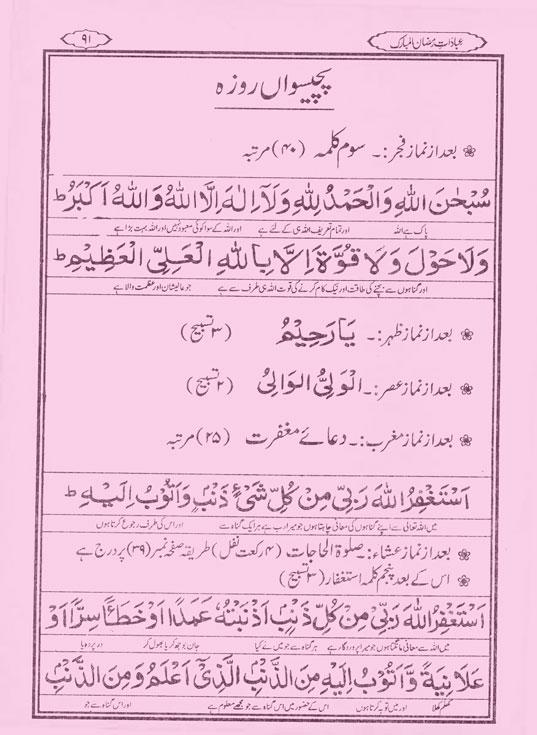 ۹۱
عبادات رمضان المبارک
پچیسواں روزہ
بعد از نماز فجر:۔ سوم کلمہ (۴۰) مرتبہ
سُبْحٰنَ اللهِ وَالْحَمْدُ لِلّٰهِ وَلَآ اِلٰهَ اِلَّا اللهُ وَاللهُ اَكْبَرُ ط
پاک ہے اللہ اور تمام تعریف اللہ ہی کے لئے ہے اور اللہ کے سوا کوئی معبود نہیں اور اللہ بہت بڑا ہے
وَلَا حَوْلَ وَلَا قُوَّةَ اِلَّا بِاللهِ الْعَلِيِّ الْعَظِيْمِ ط
اور گناہوں سے بچنے کی طاقت اور نیک کام کرنے کی قوت اللہ ہی طرف سے ہے جو عالیشان اور عظمت والا ہے
بعد از نماز ظہر:۔ يَا رَحِيْمُ (۳ تسبیح)
بعد از نماز عصر:۔ اَلْوَلِيُّ الْوَالِيُ (۲ تسبیح)
بعد از نماز مغرب:۔ دعائے مغفرت (۲۵) مرتبہ
اَسْتَغْفِرُ اللهَ رَبِّيْ مِنْ كُلِّ شَيْءٍ ذَنْبٍ وَاَتُوْبُ اِلَيْهِ ط
میں اللہ تعالی سے اپنے گناہوں کی معافی چاہتا ہوں جو میرا رب ہے ہر ایک گناہ سے اور اس کی طرف رجوع کرتا ہوں
بعد از نماز عشاء:۔ صلوة الحاجات (۴ رکعت نفل) طریقہ صفحہ نمبر (۳۹) پر درج ہے
اس کے بعد پنجم کلمہ استغفار (۳ تسبیح)
اَسْتَغْفِرُ اللهَ رَبِّيْ مِنْ كُلِّ ذَنْبٍ اَذْنَبْتُهٗ عَمَدًا اَوْ خَطَأً سِرًّا اَوْ
میں اللہ سے معافی مانگتا ہوں جو میرا پروردگار ہے ہر گناہ سے جو میں نے کیا جان بوجھ کر یا بھول کر در پردہ یا
عَلَانِيَةً وَّاَتُوْبُ اِلَيْهِ مِنَ الذَّنْبِ الَّذِيْ اَعْلَمُ وَمِنَ الذَّنْبِ
کھلم کھلا اور میں توبہ کرتا ہوں اس کے حضور میں اس گناہ سے جو مجھے معلوم ہے اور اس گناہ سے جو